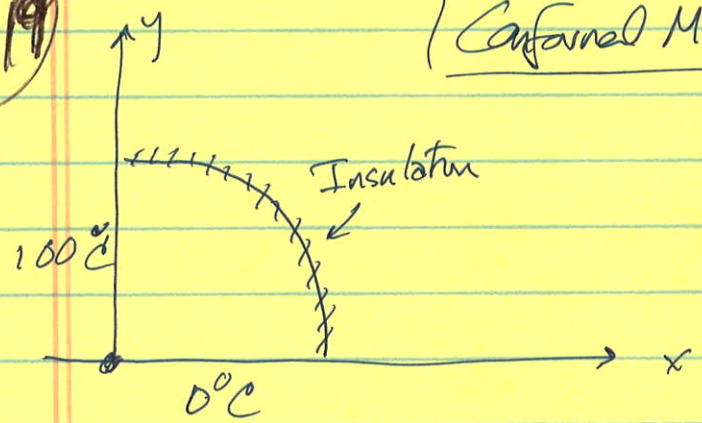 19)
y
Conformal M
Insulation
100°C
0°C
x